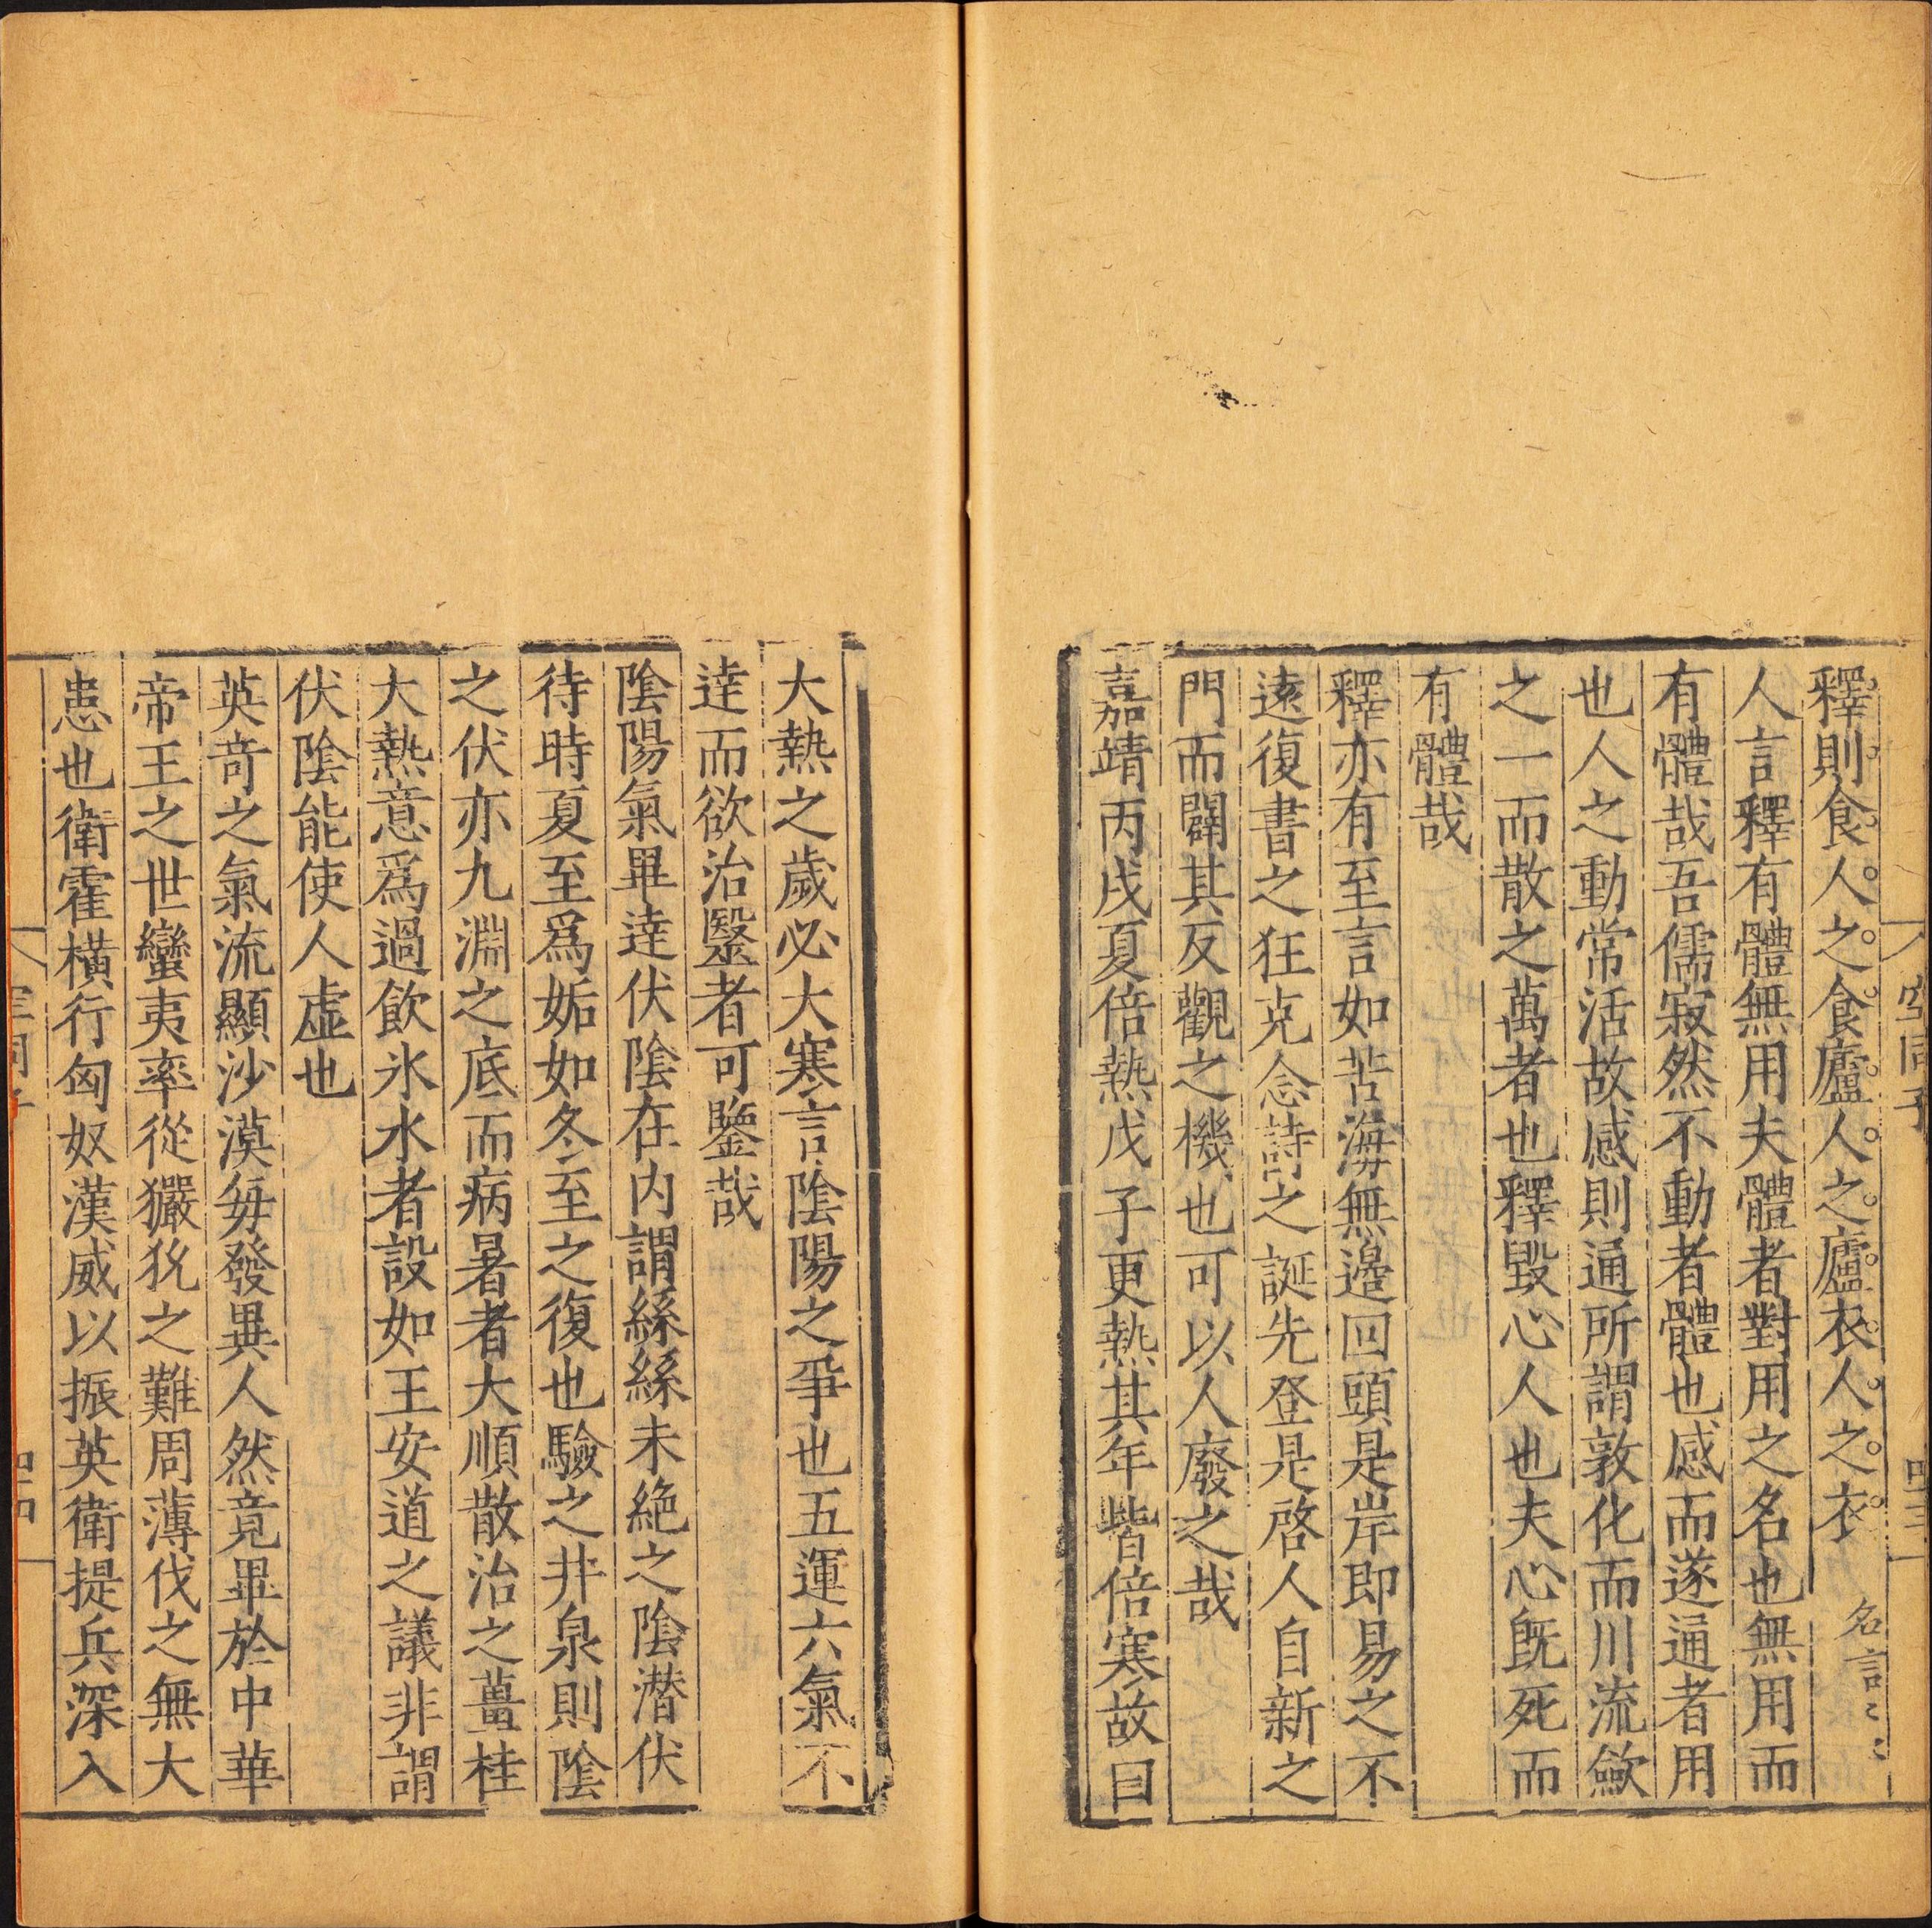 空同子
四三
釋則食人之食廬人之廬衣人之衣
名言〻〻
人言釋有體無用夫體者對用之名也無用而
有體哉吾儒寂然不動者體也感而遂通者用
也人之動常活故感則通所謂敦化而川流斂
之一而散之萬者也釋毀心人也夫心既死而
有體哉
釋亦有至言如苦海無邊回頭是岸即易之不
遠復書之狂克念詩之誕先登是啓人自新之
門而闢其反觀之機也可以人廢之哉
嘉靖丙戌夏倍熱戊子更熱其年皆倍寒故曰
大熱之歲必大寒言陰陽之爭也五運六氣不
達而欲治毉者可鑒哉
陰陽氣畢達伏陰在内謂絲絲未絶之陰潜伏
待時夏至爲姤如冬至之復也驗之井泉則陰
之伏亦九淵之底而病暑者大順散治之薑桂
大熱意爲過飲氷水者設如王安道之議非謂
伏陰能使人虚也
英奇之氣流顯沙漠每發異人然竟畢於中華
帝王之世蠻夷率從玁狁之難周薄伐之無大
患也衛霍橫行匈奴漢威以振英衛提兵深入
空同子
四四